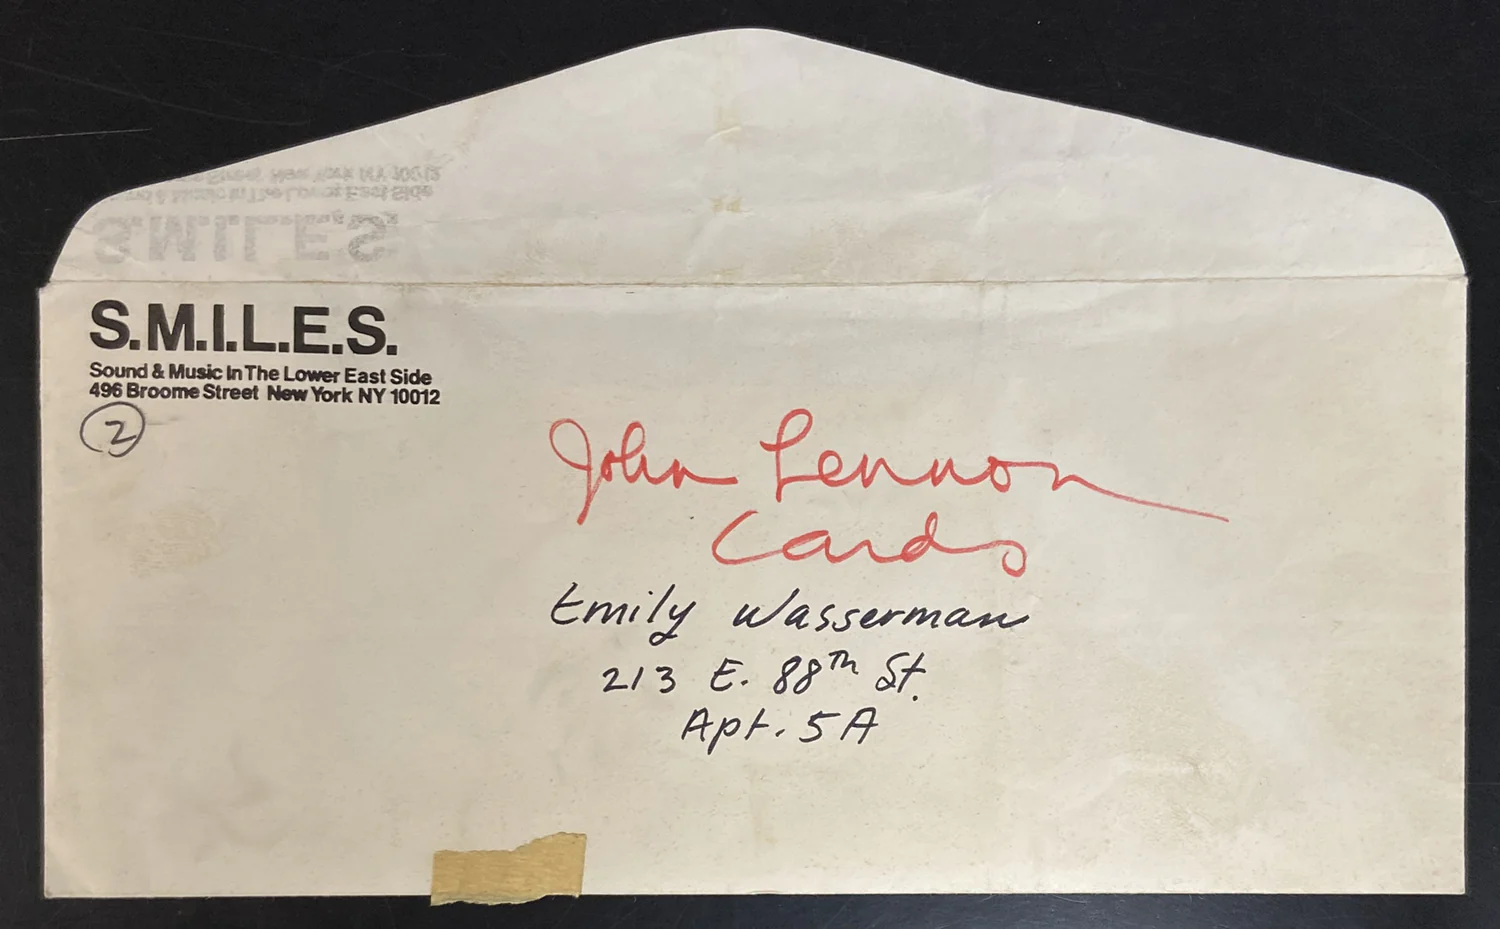 S.M.I.L.E.S.
Sound & Music In The Lower East Side
496 Broome Street New York NY 10012
2
John Lennon
Cards
Emily Wasserman
213 E. 88th St.
Apt. 5A